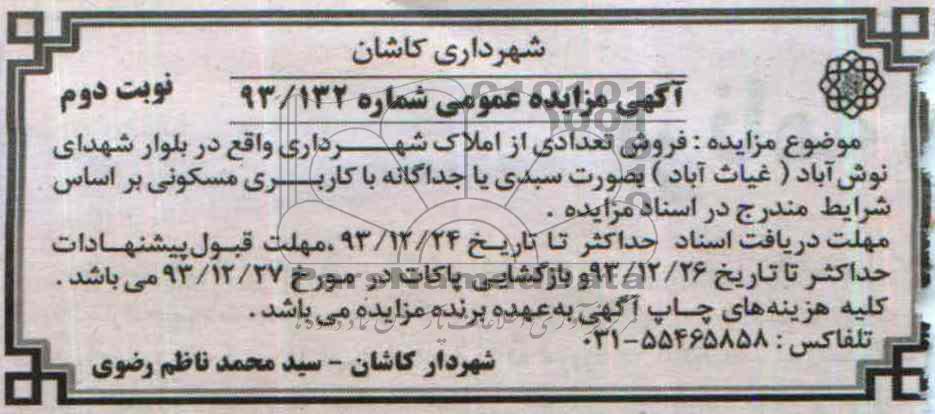 شهرداری کاشان
آگهی مزایده عمومی شماره ۹۳/۱۳۲
نوبت دوم
موضوع مزایده : فروش تعدادی از املاک شهرداری واقع در بلوار شهدای
نوش آباد ( غیاث آباد ) بصورت سبدی یا جداگانه با کاربری مسکونی بر اساس
شرایط مندرج در اسناد مزایده .
مهلت دریافت اسناد حداکثر تا تاریخ ۹۳/۱۲/۲۴ ،مهلت قبول پیشنهادات
حداکثر تا تاریخ ۹۳/۱۲/۲۶ و بازگشایی پاکات در مورخ ۹۳/۱۲/۲۷ می باشد .
کلیه هزینه‌های چاپ آگهی به عهده برنده مزایده می باشد .
تلفاکس : ۵۵۴۶۵۸۵۸-۰۳۱
شهردار کاشان - سید محمد ناظم رضوی
ParsNamadData